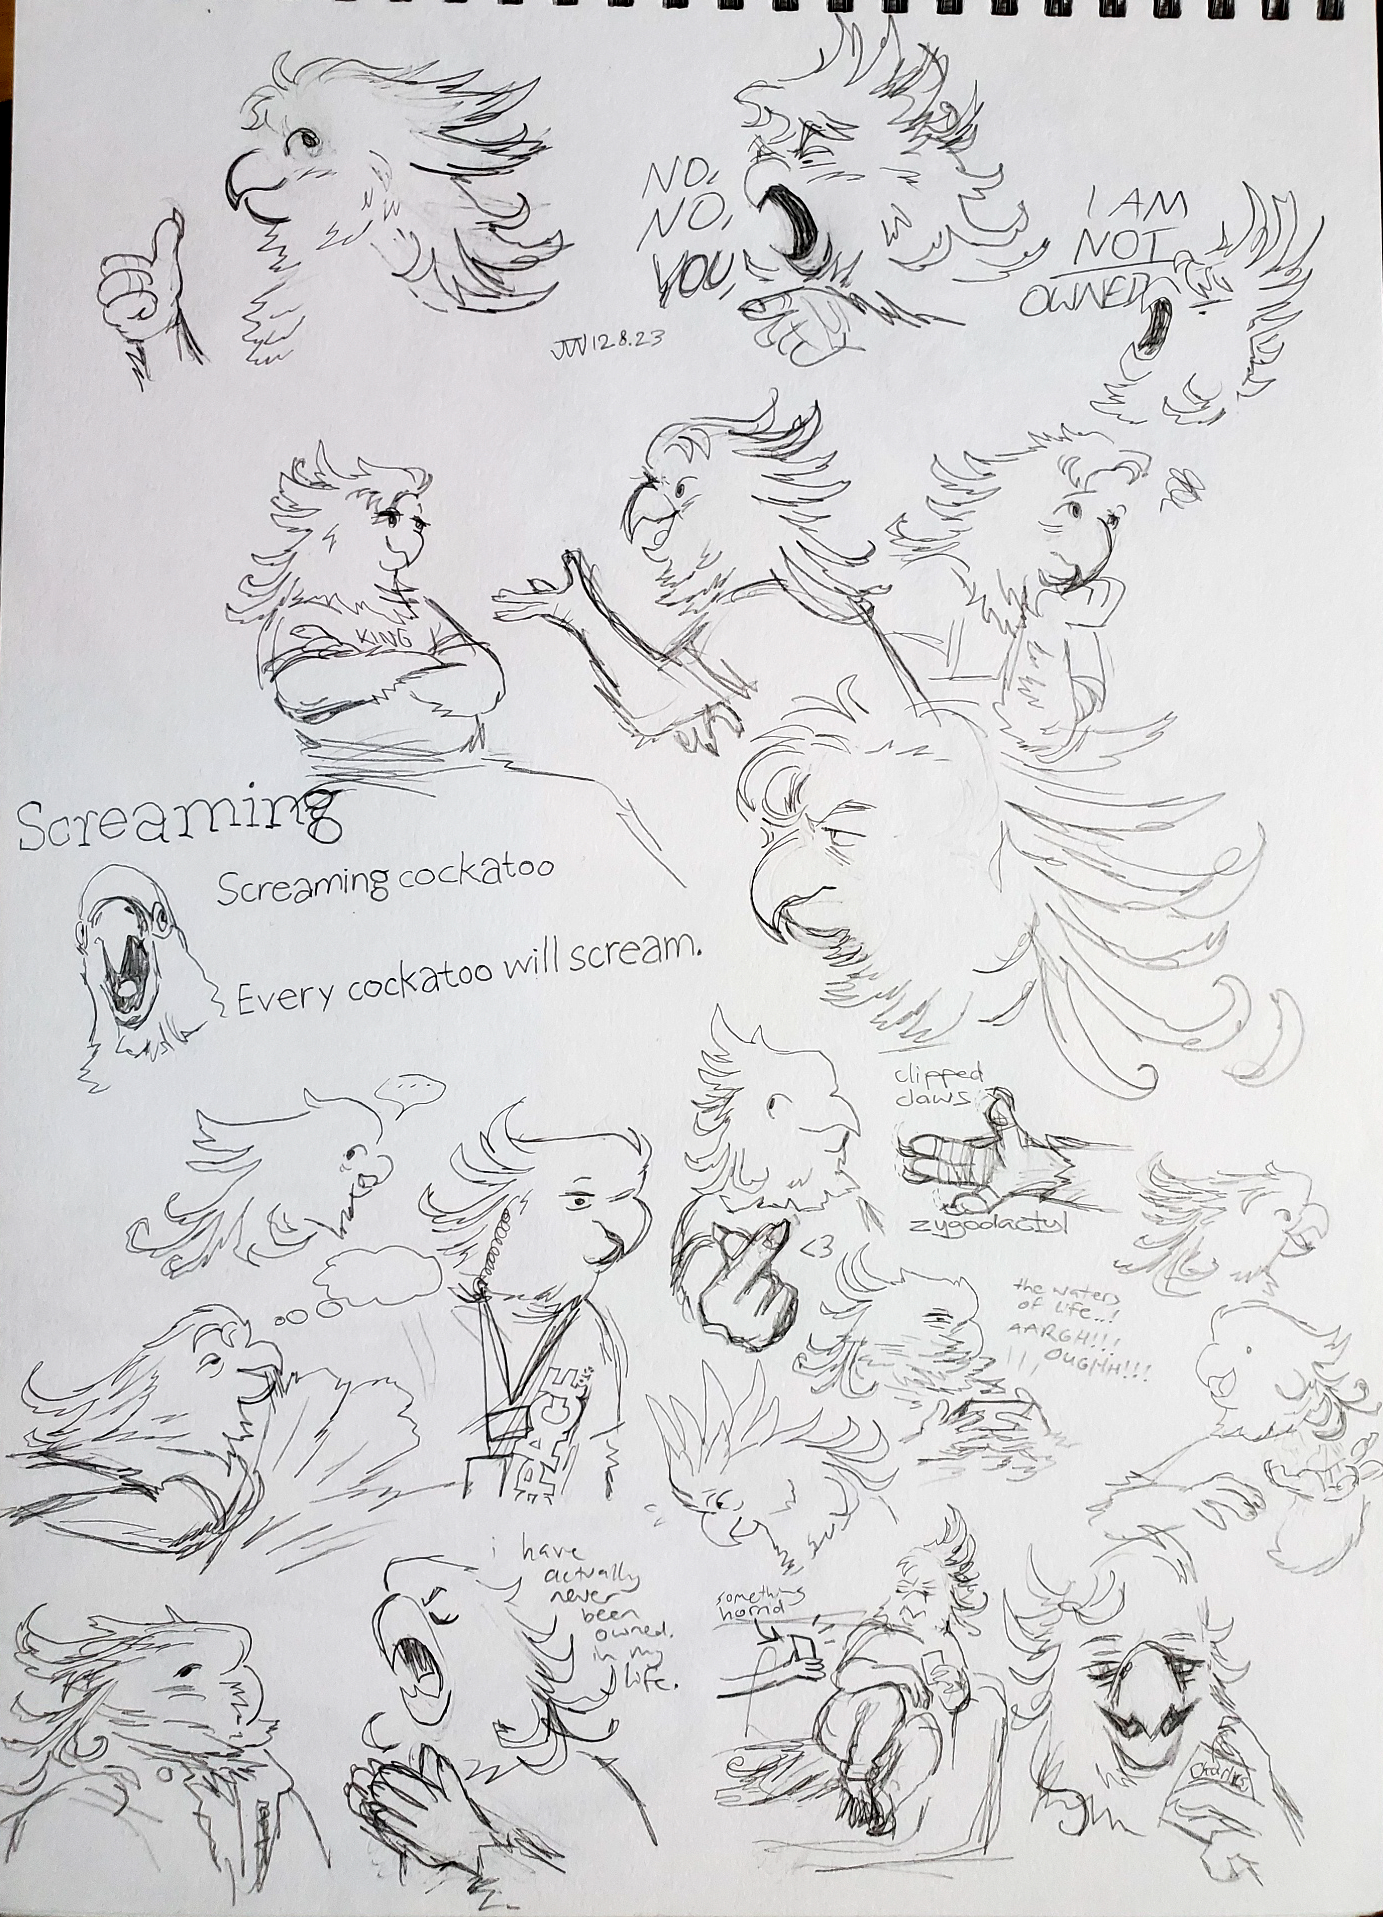 NO,
NO,
YOU,
I AM
NOT
OWNED
JW 12.8.23
KING
Screaming
Screaming cockatoo
Every cockatoo will scream.
...
clipped
claws
zygodactyl
<3
the waters
of life...!
AARGH!!!
OUGHH!!!
PLACE
i have
actually
never
been
owned.
in my
life.
something
horrid